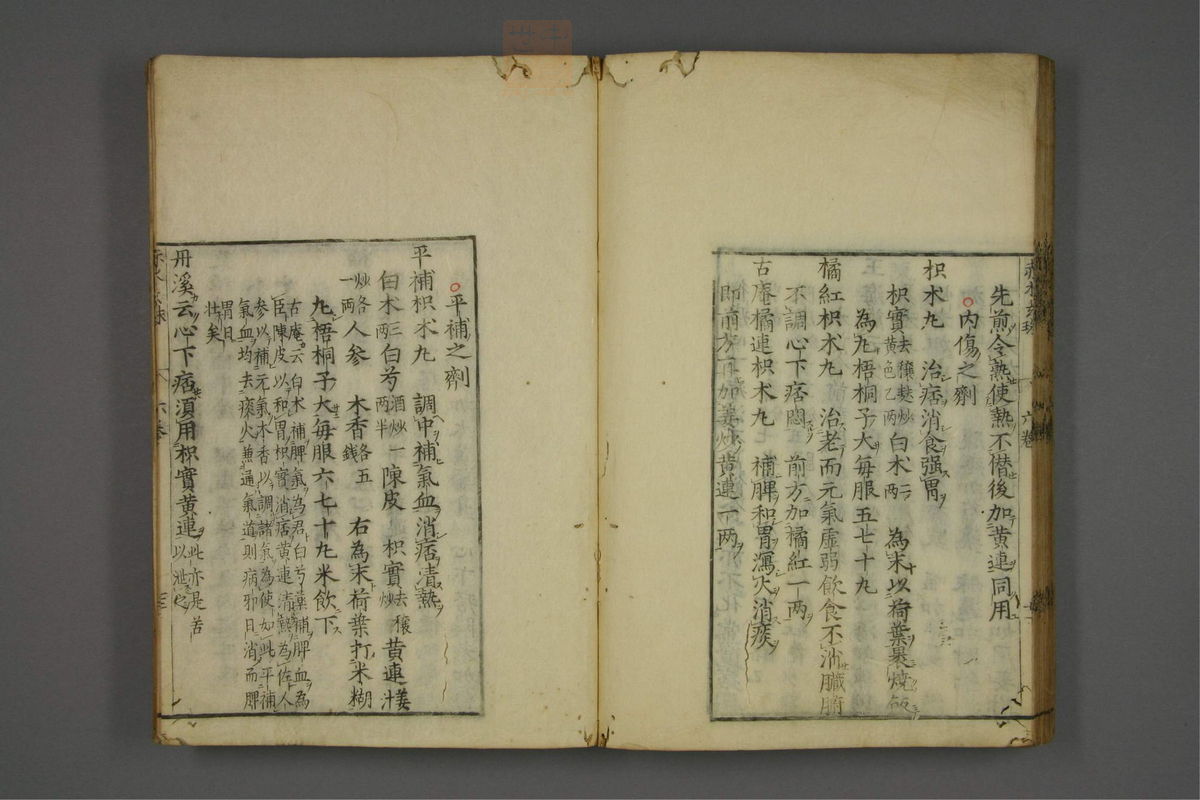 先煎令熟使熱不僣後加黄連同用
内傷之劑
枳朮丸　治痞消食强胃
枳實去穰麩炒黄色一两白朮二两　為末以荷葉褁燒飯
為丸梧桐子大每服五七十丸
橘紅枳朮丸　治老而元氣虚弱飲食不消臓腑
不調心下痞悶　前方加橘紅一两
古庵橘連枳朮丸　補脾和胃瀉火消痰
即前方再加姜炒黄連一两
平補之劑
平補枳朮丸　調中補氣血消痞清熱
白朮三两白芍酒炒一两半陳皮　枳實去穰炒黄連姜汁
炒各一两人参　木香各五錢　右為末荷葉打米糊
丸梧桐子大每服六七十丸米飲下
古庵云白朮補脾氣為君白芍藥補脾血為
臣陳皮以和胃枳實消痞黄連清熱為佐人
参以補元氣木香以調諸氣為使如此平補
氣血均去痰火兼通氣道則病邪日消而脾
胃日
壮矣
丹溪云心下痞須用枳實黄連此亦是苦
以泄之